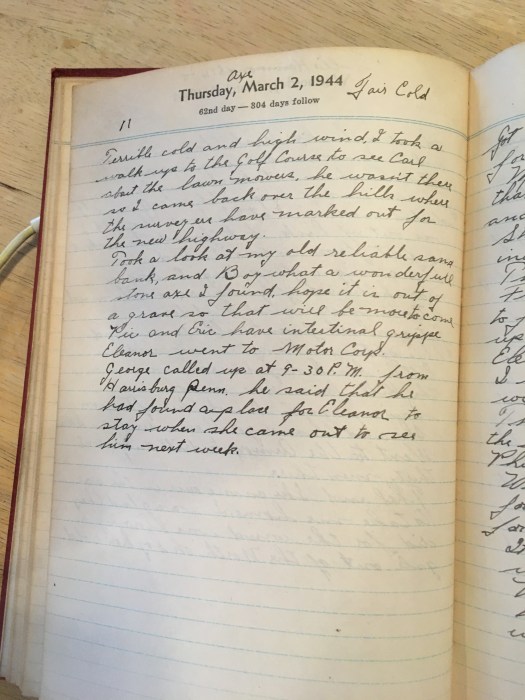 Axe
Thursday, March 2, 1944 Fair Cold
62nd day — 304 days follow
11
Terrible cold and high wind, I took a
walk up to the Golf Course to see Carl
about the lawn mowers, he wasn't there
so I came back over the hills where
the surveyers have marked out for
the new highway.
Took a look at my old reliable sand
bank, and Boy what a wonderfull
stone axe I found, hope it is out of
a grave so that will be more to come
Pic and Eric have intestinal grippe
Eleanor went to Motor Corps.
George called up at 9-30 P.M. from
Harisburg Penn. he said that he
had found a place for Eleanor to
stay when she came out to see
him next week.
Got
for
tha
and
in
to
up
Ele
I
the